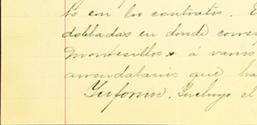 to con los contratos. E
dobladas en donde conve
Montesillos á varios
arrendatarios que ha
Informe. Incluyo el